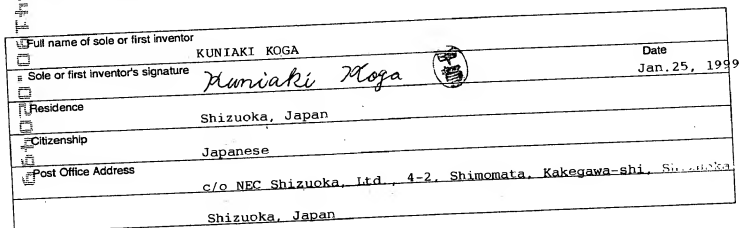 Full name of sole or first inventor
KUNIAKI KOGA
Sole or first inventor's signature Kuniaki Koga 甲賀
Date
Jan.25, 1999
Residence
Shizuoka, Japan
Citizenship
Japanese
Post Office Address
c/o NEC Shizuoka, Ltd., 4-2, Shimomata, Kakegawa-shi,
Shizuoka, Japan